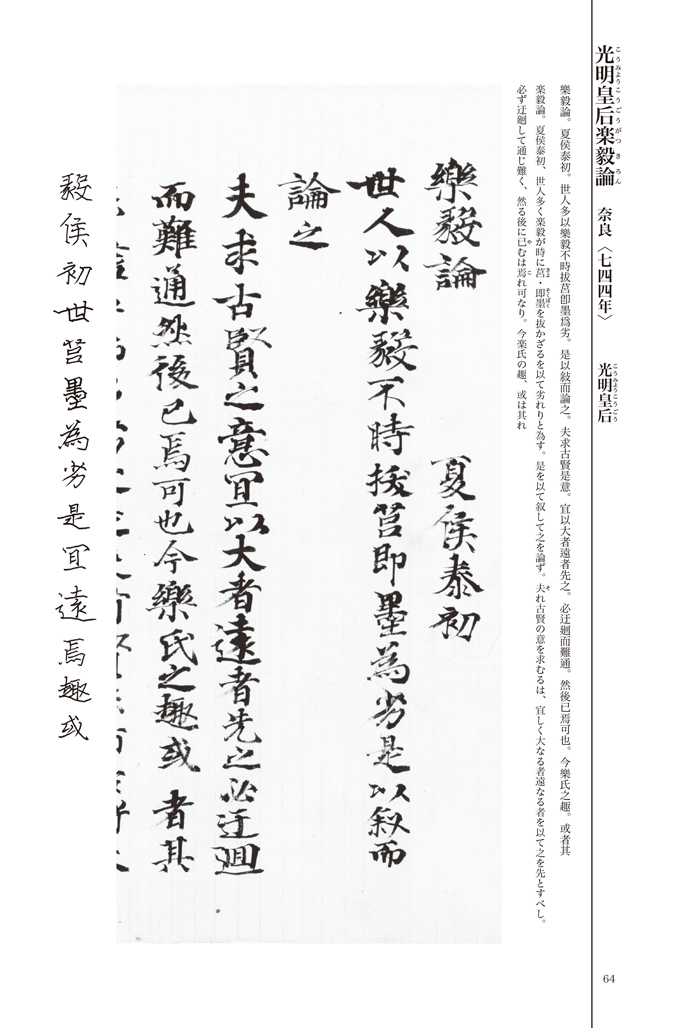 光明皇后楽毅論 奈良〈七四四年〉 光明皇后
こうみょうこうごうがつきろん
こうみょうこうごう
樂毅論。夏侯泰初。世人多以樂毅不時拔莒卽墨爲劣。是以敍而論之。夫求古賢是意。宜以大者遠者先之。必迂廻而難通。然後已焉可也。今樂氏之趣。或者其
楽毅論。夏侯泰初、世人多く楽毅が時に莒・即墨を抜かざるを以て劣れりと為す。是を以て叙して之を論ず。夫れ古賢の意を求むるは、宜しく大なる者遠なる者を以て之を先とすべし。
きょ
そくぼく
そ
必ず迂廻して通じ難く、然る後に已むは焉れ可なり。今楽氏の趣、或は其れ
や
こ
樂毅論 夏侯泰初
世人以樂毅不時拔莒即墨為劣是以叙而
論之
夫求古賢之意宜以大者遠者先之必迂迴
而難通然後已焉可也今樂氏之趣或者其
毅侯初世莒墨為劣是宜遠焉趣或
64